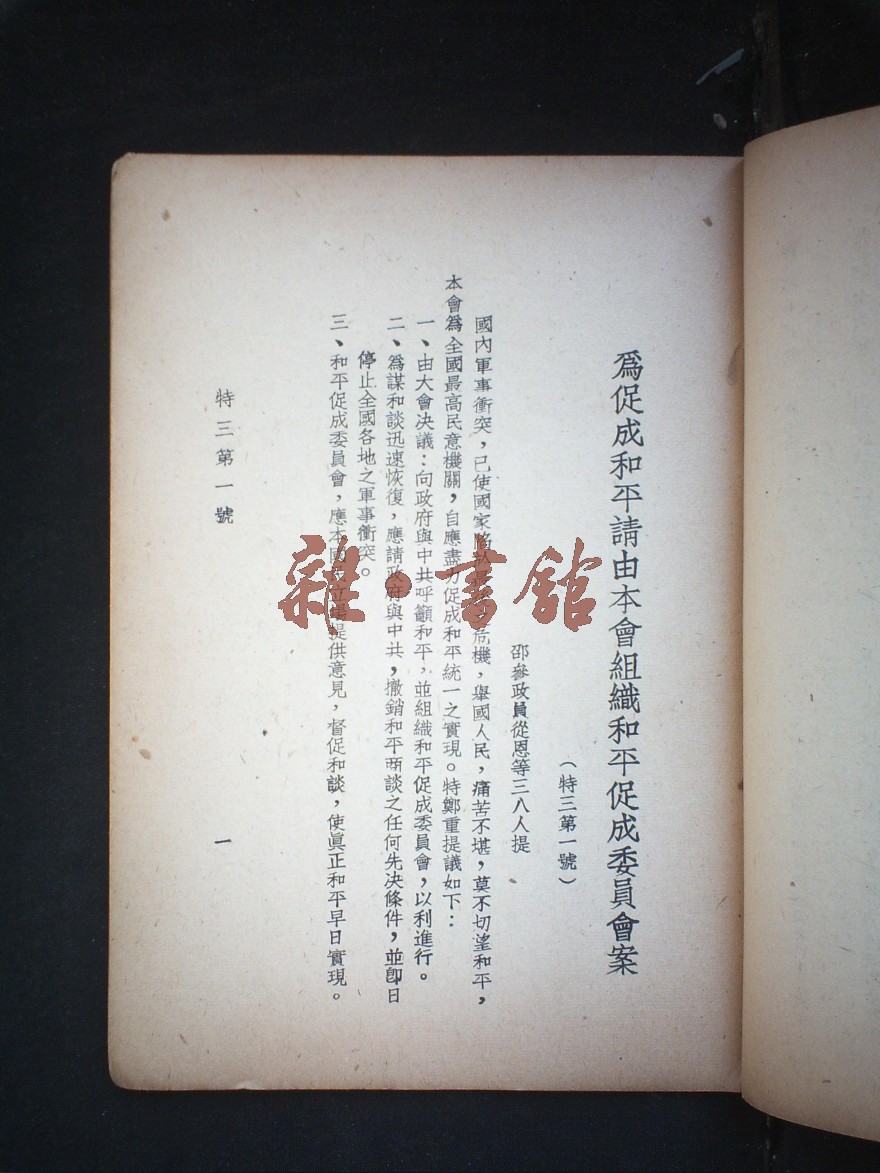 爲促成和平請由本會組織和平促成委員會案
（特三第一號）
邵參政員從恩等三八人提
國內軍事衝突，已使國家陷危機，舉國人民，痛苦不堪，莫不切望和平，
本會爲全國最高民意機關，自應盡力促成和平統一之實現。特鄭重提議如下：
一、由大會決議：向政府與中共呼籲和平，並組織和平促成委員會，以利進行。
二、爲謀和談迅速恢復，應請政府與中共，撤銷和平商談之任何先決條件，並卽日
停止全國各地之軍事衝突。
三、和平促成委員會，應本國民立場提供意見，督促和談，使眞正和平早日實現。
特三第一號
一
雜·書館